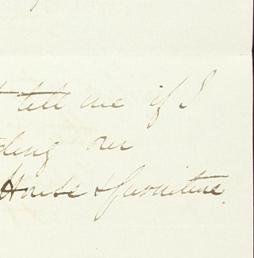 t tell me if I
ding our
House & furniture.